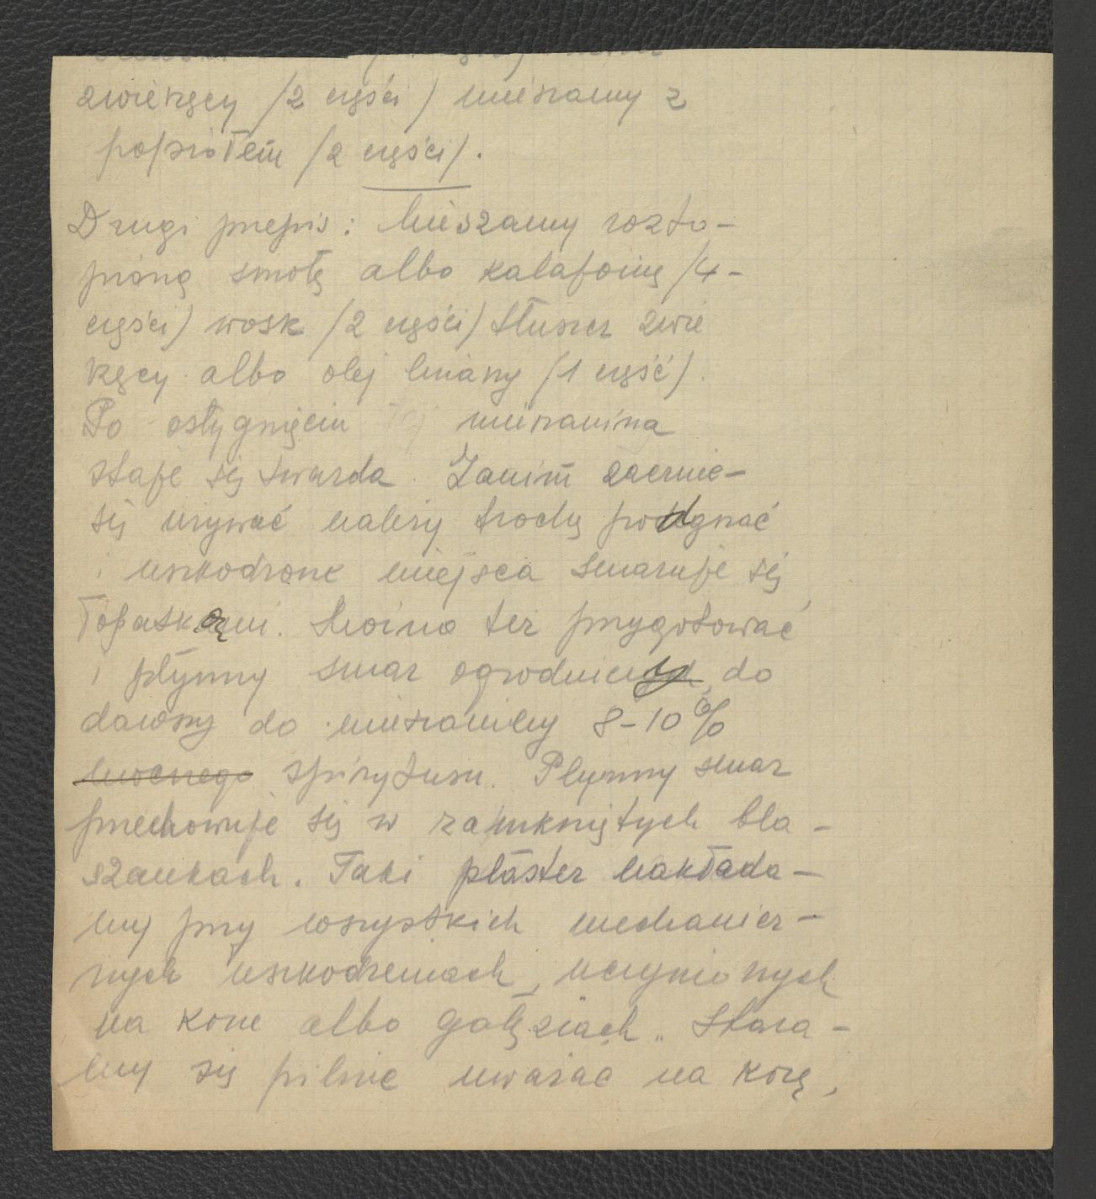 zwierzęcy /2 części/ mieszamy z
popiołem /2 części/.
Drugi przepis: Mieszamy rozto-
pioną smołę albo kalafonię /4-
części/ wosk /2 części/ tłuszcz zwie
rzęcy albo olej lniany /1 część/.
Po ostygnięciu mieszanina
staje się twarda. Zanim zacznie-
się używać należy trochę podgrzać
i uszkodzone miejsca smaruje się
łopatką. Można też przygotować
i płynny smar ogrodniczy, do
dawszy do mieszaniny 8-10%
mocnego spirytusu. Płynny smar
przechowuje się w zamkniętych bla-
szankach. Taki plaster nakłada-
my przy wszystkich mechanicz-
nych uszkodzeniach, uczynionych
na korze albo gałęziach. Stara-
my się pilnie uważać na korę,